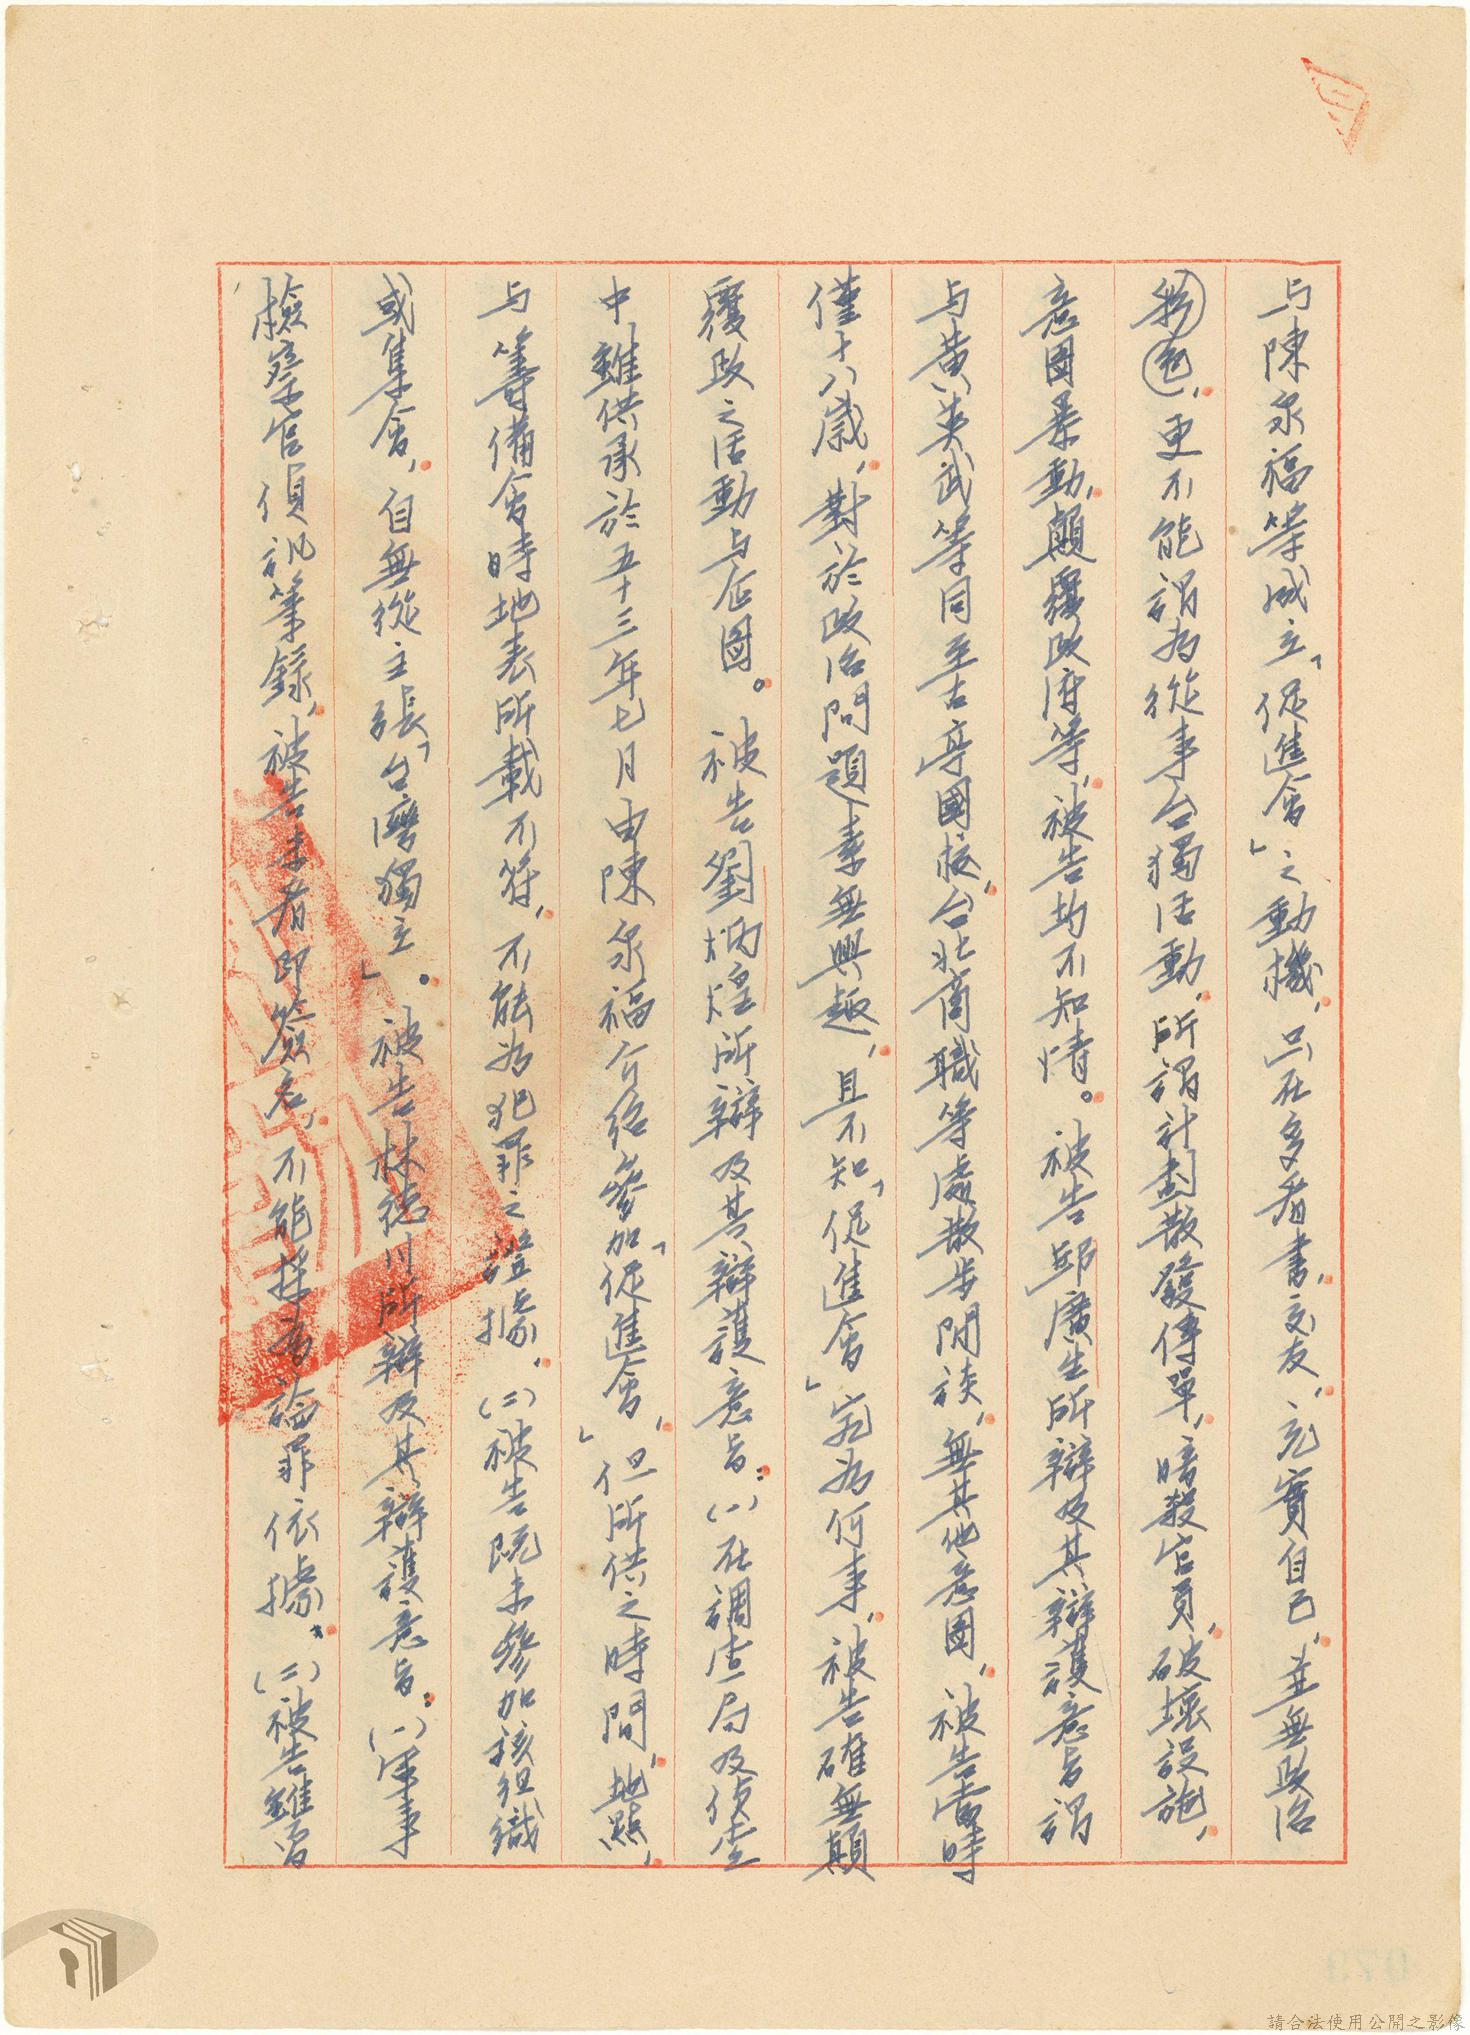 与陳泉福等成立「促進會」之動機，只在多看書，交友，充實自己，並無政治
色彩，更不能謂為從事台獨活動，所謂計劃散發傳單，暗殺官員，破壞設施，
意圖暴動，顛覆政府等，被告均不知情。被告邱廣生所辯及其辯護意旨謂
与黃英武等同至古亭國校，台北商職等處散步閒談，無其他意圖，被告當時
僅十八歲，對於政治問題素無興趣，且不知「促進會」究為何事，被告確無顛
覆政之活動与企圖。被告劉炳煌所辯及其辯護意旨：(一)在調查局及偵查
中雖供承於五十三年七月由陳泉福介紹參加「促進會」，但所供之時間，地點，
与籌備會時地表所載不符，不能為犯罪之證據，(二)被告既未參加該組織
或集會，自無從主張「台灣獨立」。被告林德川所辯及其辯護意旨：(一)軍事
檢察官偵訊筆錄，被告未看即簽名，不能採為論罪依據。(二)被告雖曾
請合法使用公開之影像